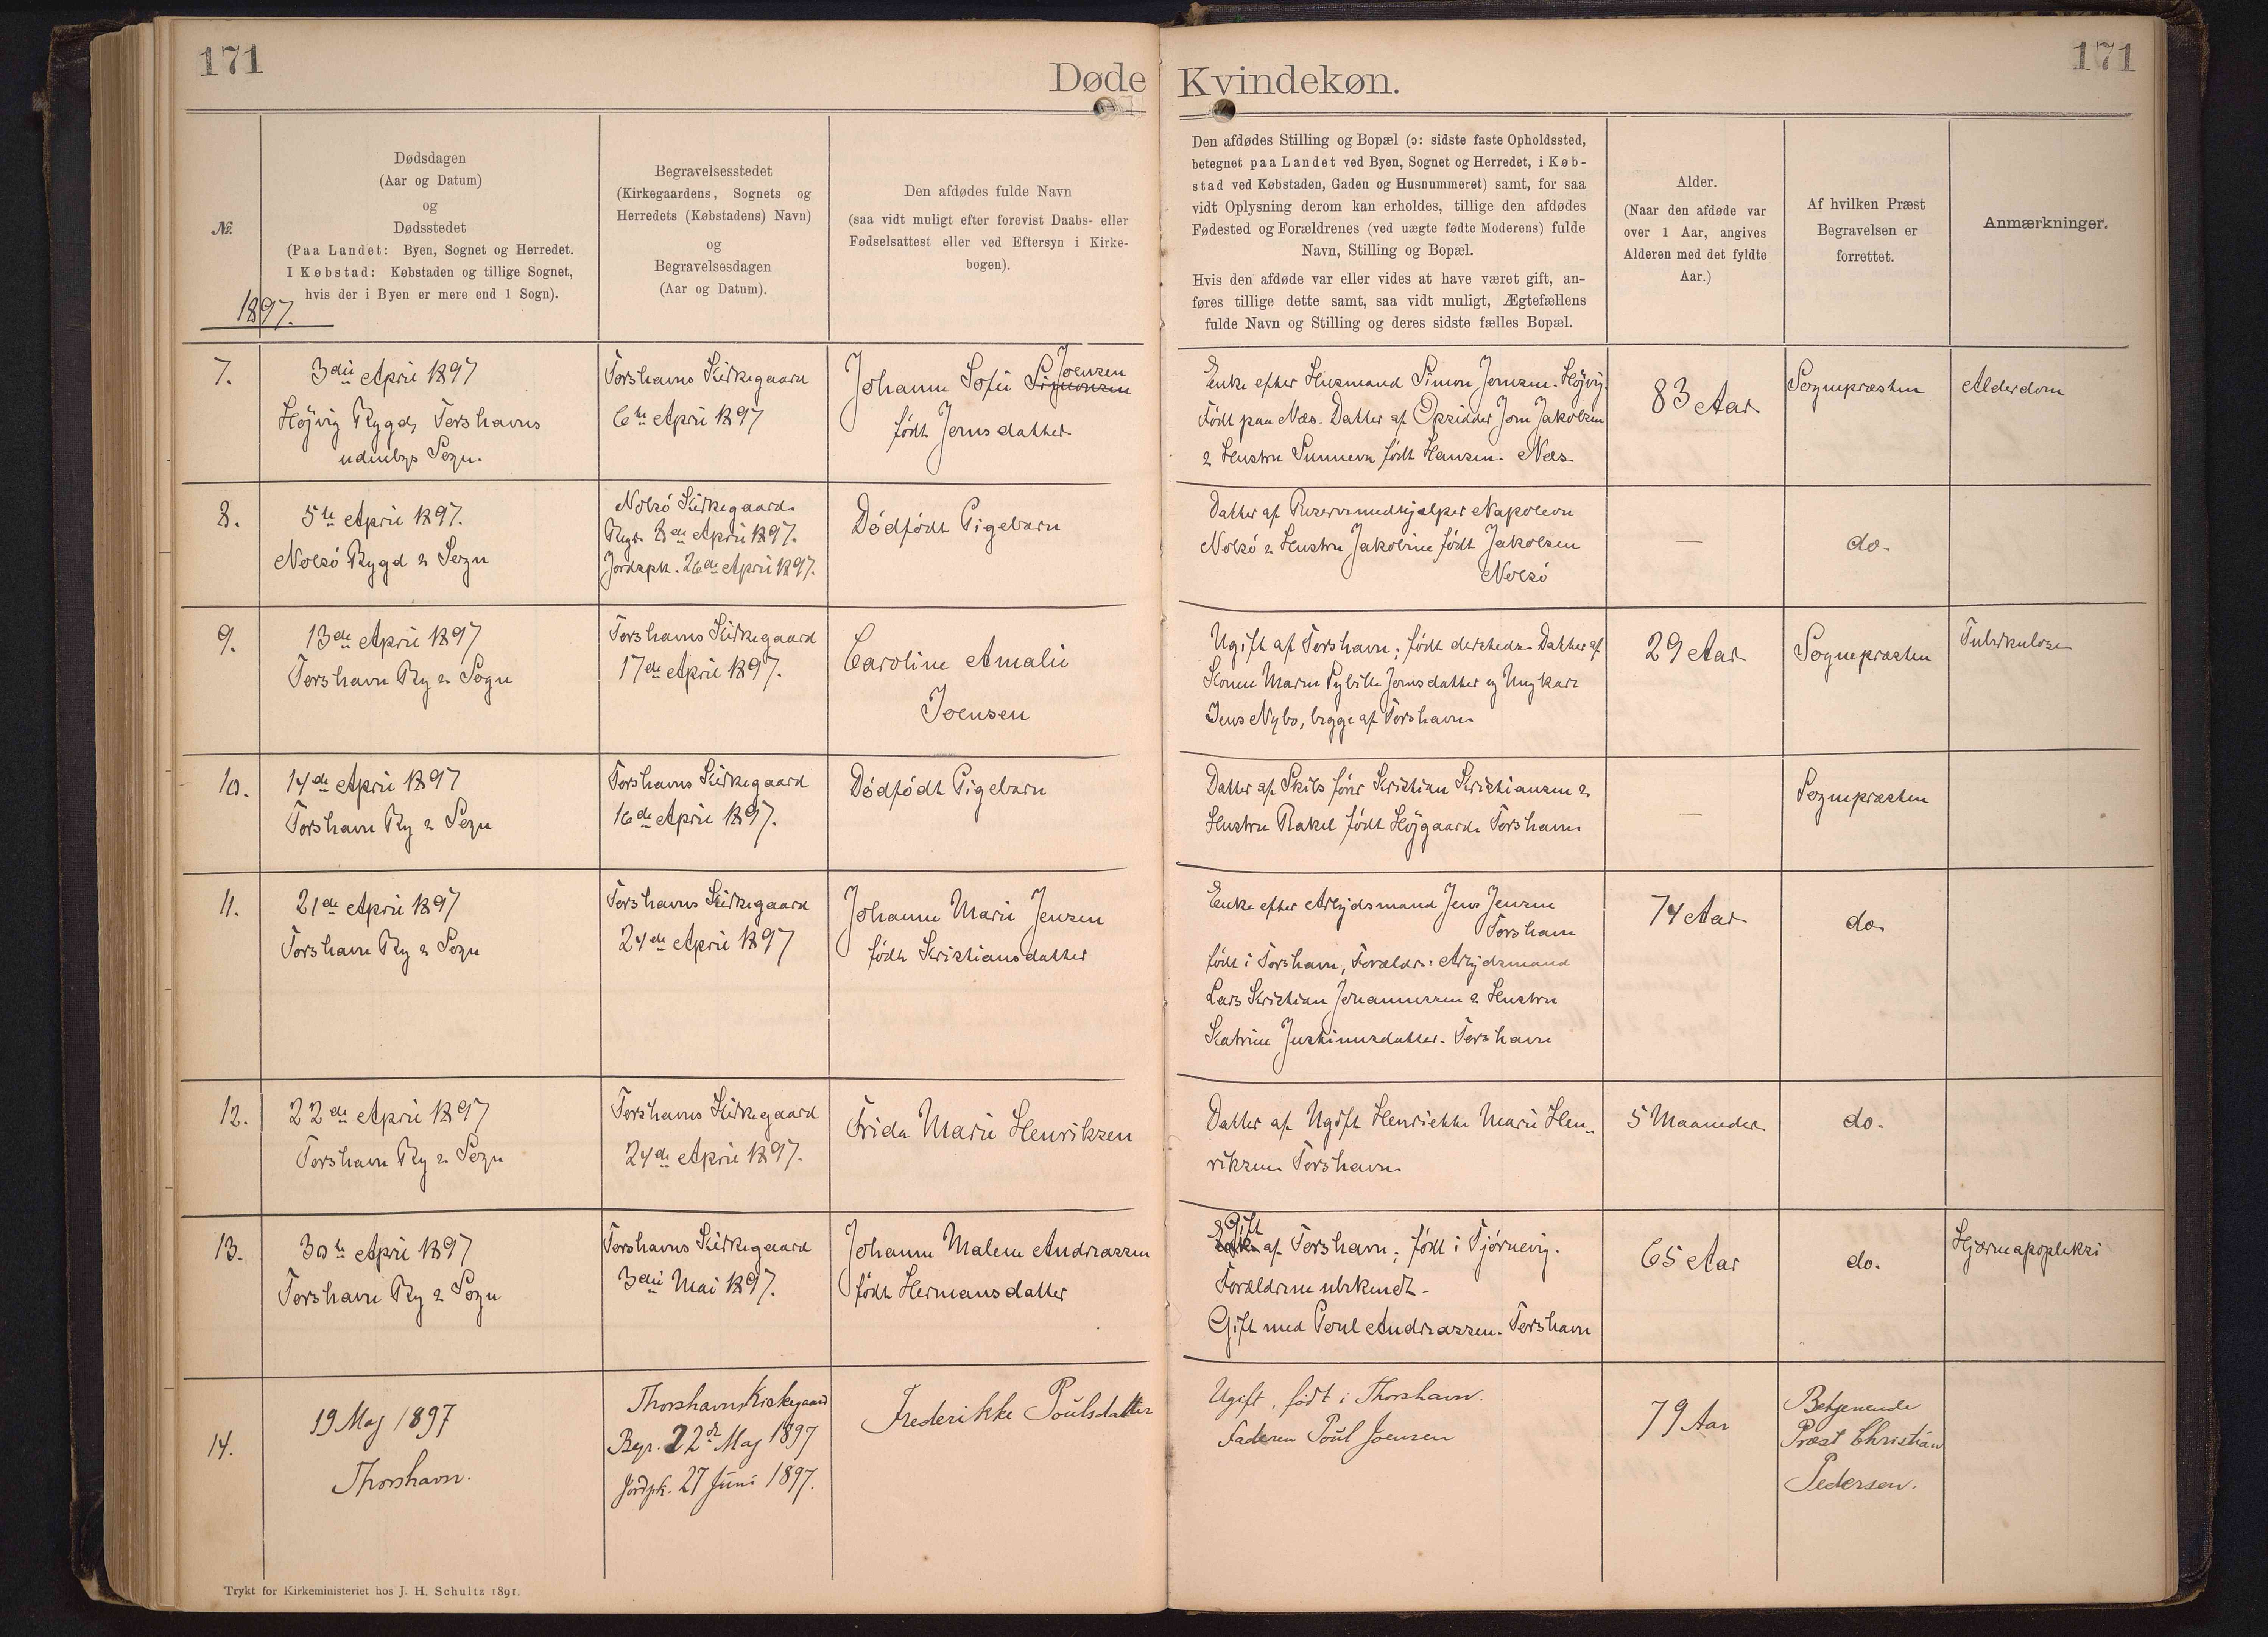 171
171
Døde Kvindekøn.
№
1897.
Dødsdagen
(Aar og Datum)
og
Dødsstedet
(Paa Landet: Byen, Sognet og Herredet.
I Købstad: Købstaden og tillige Sognet,
hvis der i Byen er mere end 1 Sogn).
Begravelsesstedet
(Kirkegaardens, Sognets og
Herredets (Købstadens) Navn)
og
Begravelsesdagen
(Aar og Datum).
Den afdødes fulde Navn
(saa vidt muligt efter forevist Daabs- eller
Fødselsattest eller ved Eftersyn i Kirke-
bogen).
Den afdødes Stilling og Bopæl (ɔ: sidste faste Opholdssted,
betegnet paa Landet ved Byen, Sognet og Herredet, i Køb-
stad ved Købstaden, Gaden og Husnummeret) samt, for saa
vidt Oplysning derom kan erholdes, tillige den afdødes
Fødested og Forældrenes (ved uægte fødte Moderens) fulde
Navn, Stilling og Bopæl.
Hvis den afdøde var eller vides at have været gift, an-
føres tillige dette samt, saa vidt muligt, Ægtefællens
fulde Navn og Stilling og deres sidste fælles Bopæl.
Alder.
(Naar den afdøde var
over 1 Aar, angives
Alderen med det fyldte
Aar.)
Af hvilken Præst
Begravelsen er
forrettet.
Anmærkninger.
7.
3die April 1897
Højvig Bygd, Torshavns
udenbys Sogn.
Torshavns Kirkegaard
6te April 1897
Johanne Sofie Simonsen Joensen
født Jonsdatter
Enke efter Husmand Simon Joensen. Højvig.
Født paa Næs. Datter af Opsidder Jon Jakobsen
& Hustru Sunneva født Hansen. Næs
83 Aar
Sognepræsten
Alderdom
8.
5te April 1897.
Nolsö Bygd & Sogn
Nolsö Kirkegaard.
Begr. 8de April 1897.
Jordspk. 26de April 1897.
Dødfødt Pigebarn
Datter af Reservemedhjælper Napoleon
Nolsö & Hustru Jakobine født Jakobsen
Nolsö
—
do.
9.
13de April 1897
Torshavn By & Sogn
Torshavns Kirkegaard
17de April 1897.
Caroline Amalie
Joensen
Ugift af Torshavn; født dersteds. Datter af
Konen Maren Sybille Jonsdatter og Ungkarl
Jens Nybo, begge af Torshavn
29 Aar
Sognepræsten
Tuberkulose
10.
14de April 1897
Torshavn By & Sogn
Torshavns Kirkegaard
16de April 1897.
Dødfødt Pigebarn
Datter af Skibsfører Kristian Kristiansen &
Hustru Rakel født Højgaard. Torshavn
—
Sognepræsten
11.
21de April 1897
Torshavn By & Sogn
Torshavns Kirkegaard
24de April 1897
Johanne Marie Jensen
født Kristiansdatter
Enke efter Arbejdsmand Jens Jensen
Torshavn
født i Torshavn, Forældre: Arbejdsmand
Lars Kristian Johannessen & Hustru
Katrine Justinusdatter. Torshavn
74 Aar
do.
12.
22de April 1897
Torshavn By & Sogn
Torshavns Kirkegaard
24de April 1897.
Frida Marie Henriksen
Datter af Ugift Henriette Marie Hen-
riksen. Torshavn
5 Maaneder
do.
13.
30te April 1897
Torshavn By & Sogn
Torshavns Kirkegaard
3die Mai 1897.
Johanne Malene Andreassen
født Hermansdatter
Enke Gift af Torshavn; født i Tjørnevig.
Forældrene ubekendt.
Gift med Poul Andreassen. Torshavn
65 Aar
do.
Hjerneapopleksi
14.
19 Maj 1897
Thorshavn.
Thorshavns Kirkegaard
Begr. 22de Maj 1897
Jordpk. 27 Juni 1897.
Frederikke Poulsdatter
Ugift, født i Thorshavn.
Faderen Poul Joensen
79 Aar
Betjenende
Præst Christian
Pedersen.
Trykt for Kirkeministeriet hos J. H. Schultz 1891.